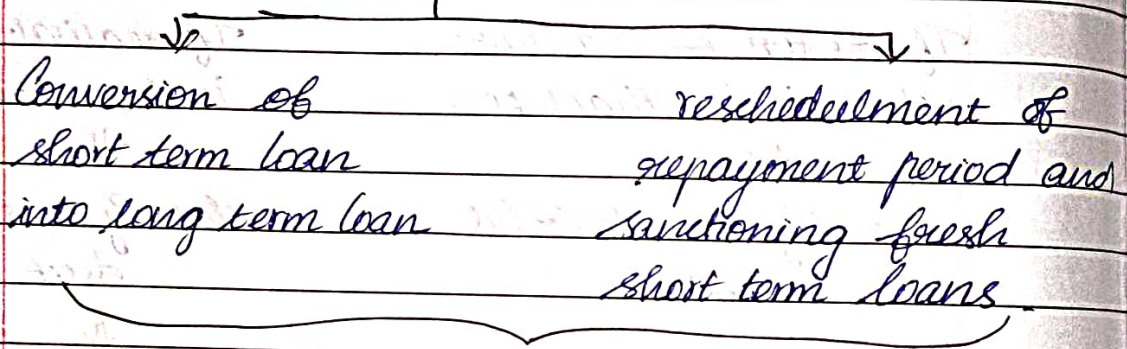 Conversion of
short term loan
into long term loan
reschedeulment of
repayment period and
sanctioning fresh
short term loans.